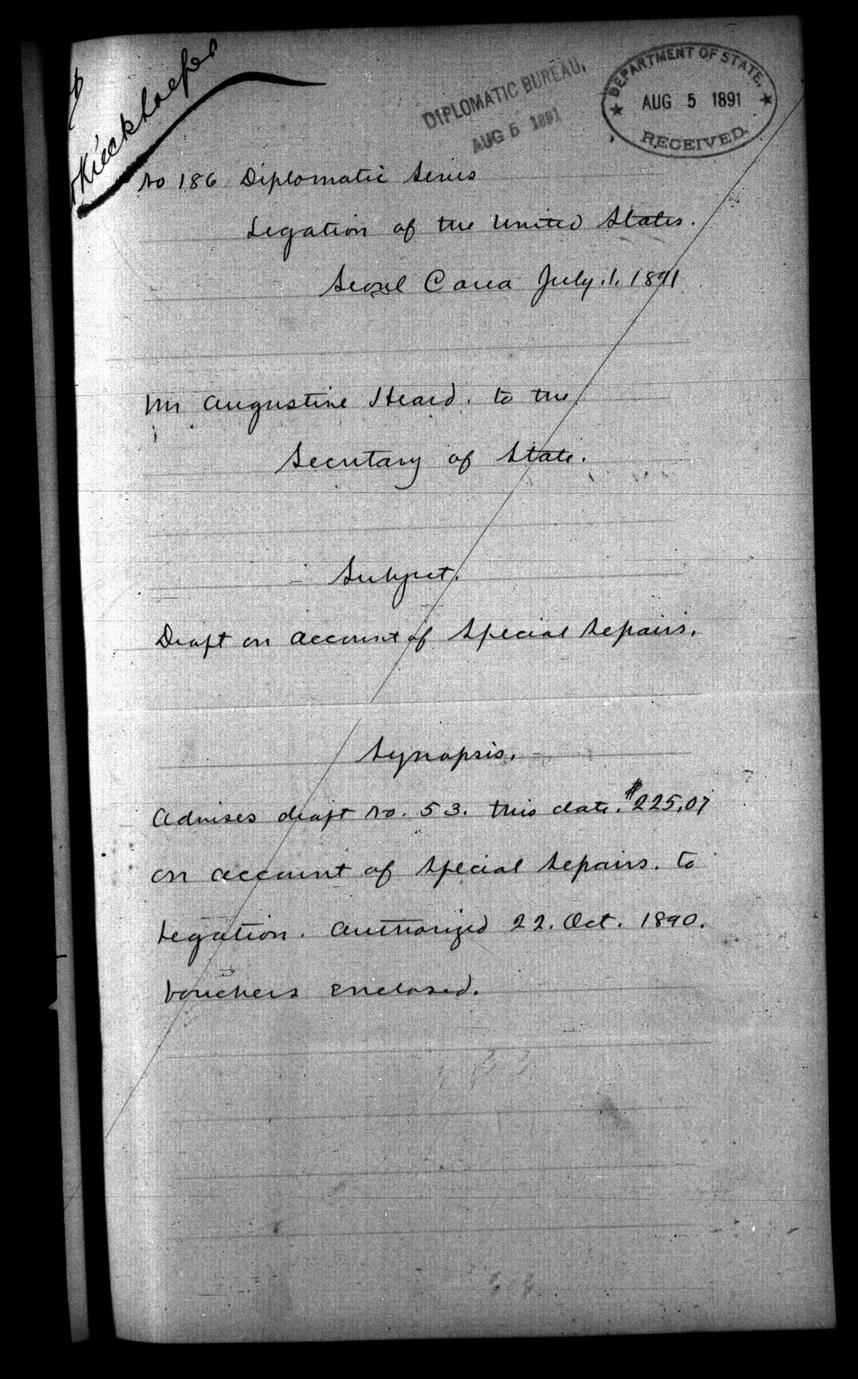 Kieckhoefer
DIPLOMATIC BUREAU.
AUG 5 1891
DEPARTMENT OF STATE.
AUG 5 1891
RECEIVED.
No 186 Diplomatic Series
Legation of the United States.
Seoul Corea July 1, 1891
Mr Augustine Heard. to the
Secretary of State.
Subject.
Draft on account of Special Repairs.
Synopsis.
Advises draft No. 53. this date. $225.07
on account of Special Repairs. to
Legation. Authorized 22. Oct. 1890.
Vouchers enclosed.